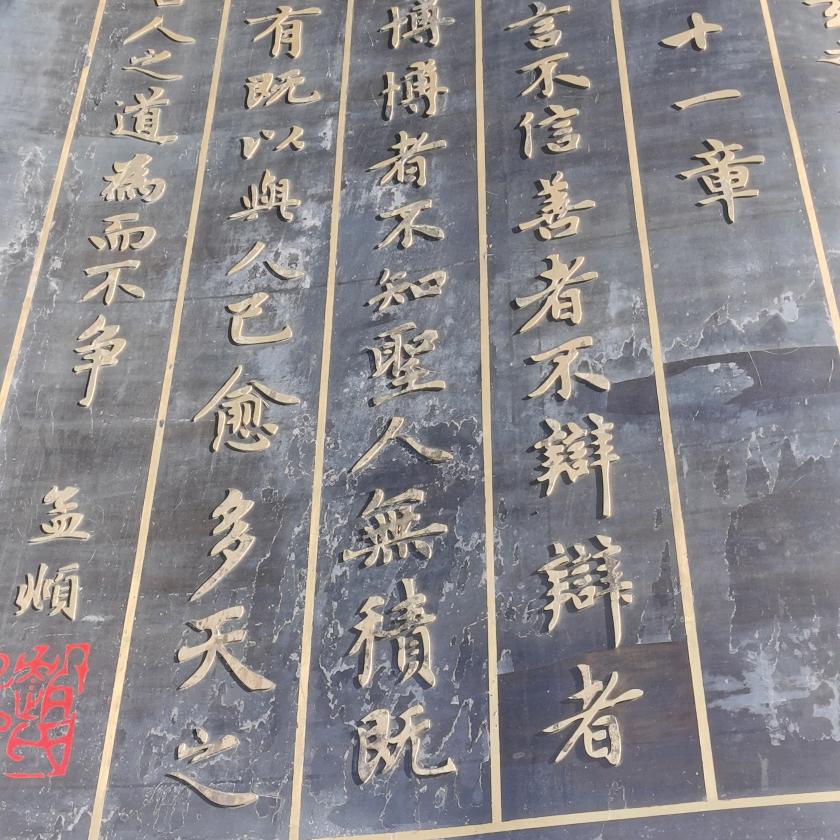 十一章
言不信善者不辯辯者
博博者不知聖人無積既
有既以與人已愈多天之
人之道為而不争
孟順